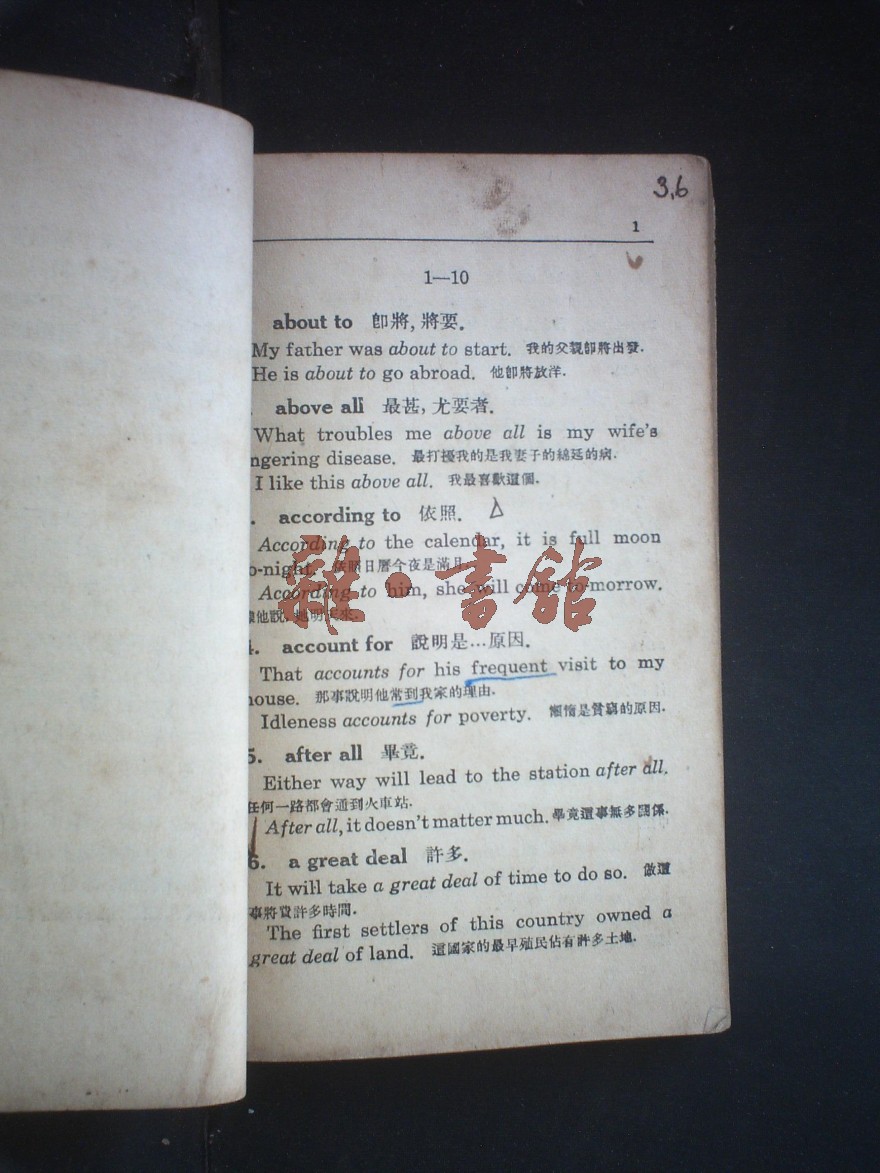 3,6
1
1—10
about to 即將, 將要.
My father was about to start. 我的父親即將出發.
He is about to go abroad. 他即將放洋.
above all 最甚, 尤要者.
What troubles me above all is my wife's
ngering disease. 最打擾我的是我妻子的綿延的病.
I like this above all. 我最喜歡這個.
according to 依照.
According to the calendar, it is full moon
o-night. 依照日曆今夜是滿月
According to him, she will come to-morrow.
據他說, 她明天來.
4. account for 說明是…原因.
That accounts for his frequent visit to my
house. 那事說明他常到我家的理由.
Idleness accounts for poverty. 懶惰是貧窮的原因.
5. after all 畢竟.
Either way will lead to the station after all.
任何一路都會通到火車站.
After all, it doesn't matter much. 畢竟這事無多關係.
6. a great deal 許多.
It will take a great deal of time to do so. 做這
事將費許多時間.
The first settlers of this country owned a
great deal of land. 這國家的最早殖民佔有許多土地.
雜·書館